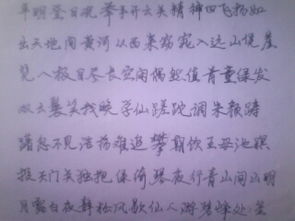 平明登日观 举手开云关 精神四飞扬 如
出天地间 黄河从西来 窈窕入远山 凭崖
览八极 目尽长空闲 偶然值青童 绿发
双云鬟 笑我晚学仙 蹉跎凋朱颜 踌
躇忽不见 浩荡难追攀 朝饮王母池 瞑
投天门关 独抱绿绮琴 夜行青山间 山明
月露白 夜静松风歇 仙人游碧峰 处处笙